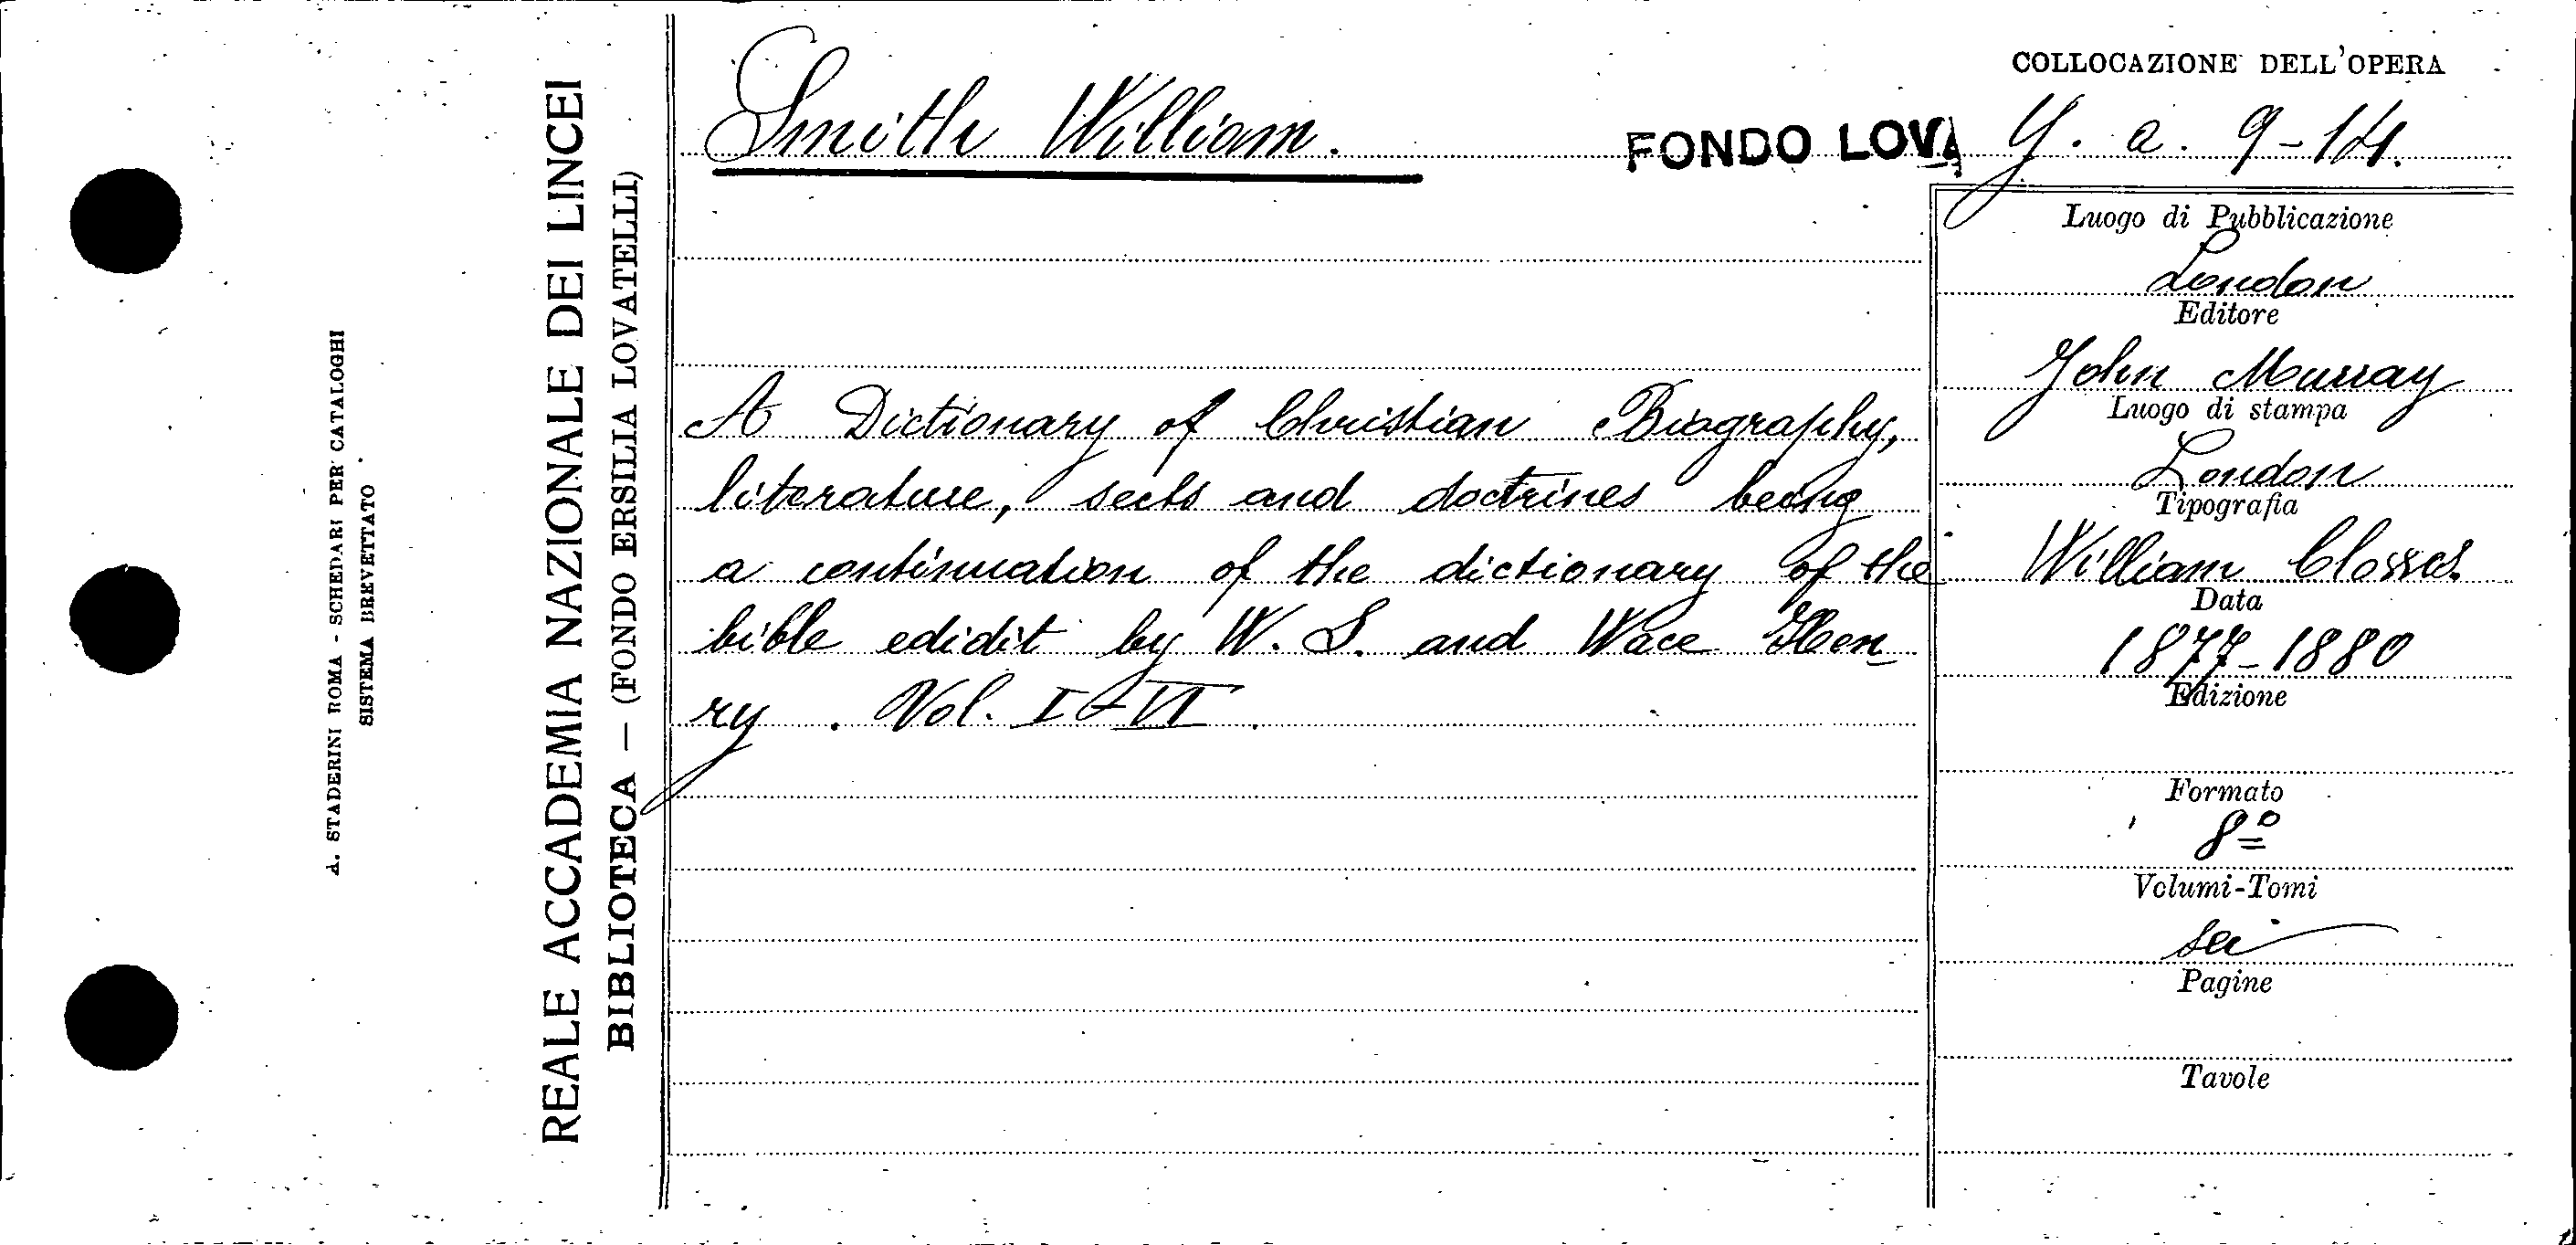 A. STADERINI ROMA - SCHEDARI PER CATALOGHI
SISTEMA BREVETTATO
REALE ACCADEMIA NAZIONALE DEI LINCEI
BIBLIOTECA — (FONDO ERSILIA LOVATELLI)
Smith William.
FONDO LOVA
A Dictionary of Christian Biography,
literature, sects and doctrines being
a continuation of the dictionary of the
bible edidit by W. S. and Wace Hen
ry . Vol. I-VI.
COLLOCAZIONE DELL'OPERA
Y. a. 9-14.
Luogo di Pubblicazione
London
Editore
John Murray
Luogo di stampa
London
Tipografia
William
Data
1877-1880
Edizione
Formato
8º
Volumi-Tomi
sei
Pagine
Tavole